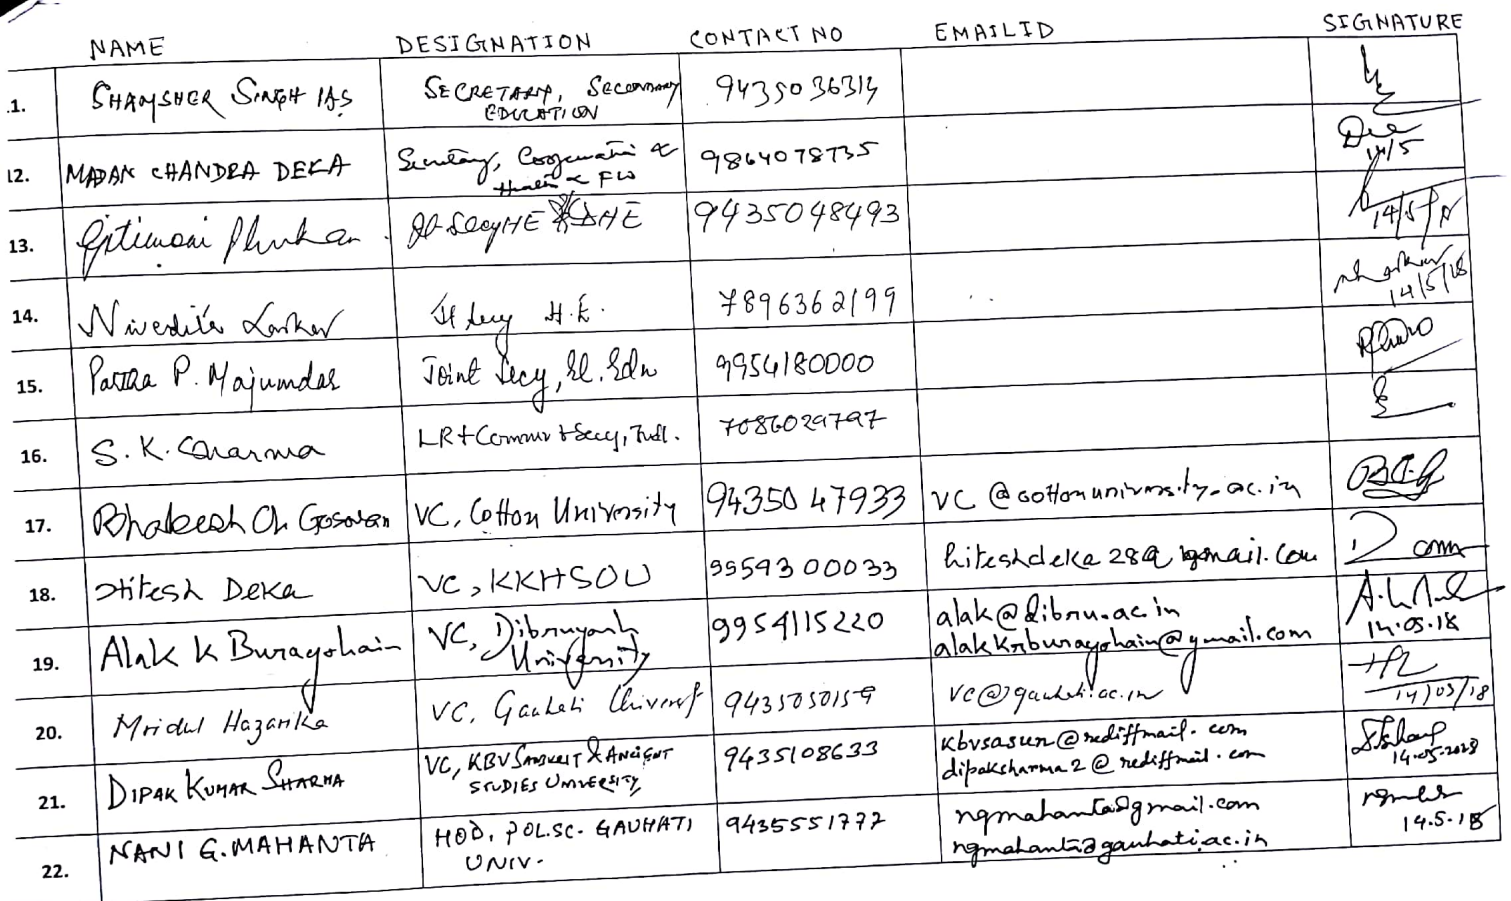 NAME DESIGNATION CONTACT NO EMAILID SIGNATURE
1. SHAMSHER SINGH IAS SECRETARY, SECONDARY EDUCATION 9435036314
12. MADAN CHANDRA DEKA Secretary, Cooperation & Health & FW 9864078735 14/5
13. Gitimoni Phukan Jt Secy HE DHE 9435048493 14/5/18
14. Nivedita Laskar Jt Secy H.E. 7896362199 14/5/18
15. Partha P. Majumdar Joint Secy, El. Edn 9954180000
16. S. K. Sharma LR & Commr & Secy, Judl. 7086029797
17. Bhabesh Ch Goswami VC, Cotton University 94350 47933 VC @ cottonuniversity.ac.in
18. Hitesh Deka VC, KKHSOU 9959300033 hiteshdeka28@gmail.com
19. Alak K Buragohain VC, Dibrugarh University 9954115220 alak@dibru.ac.in
alakkrburagohain@gmail.com 14.05.18
20. Mridul Hazarika VC, Gauhati University 9435050159 vc@gauhati.ac.in 14/05/18
21. DIPAK KUMAR SHARMA VC, KBV SANSKRIT & ANCIENT STUDIES UNIVERSITY 9435108633 kbvsasun@rediffmail.com
dipaksharma2@rediffmail.com 14.05.2018
22. NANI G. MAHANTA HOD, POL.SC. GAUHATI UNIV. 9435551777 ngmahanta@gmail.com
ngmahanta@gauhati.ac.in 14.5.18